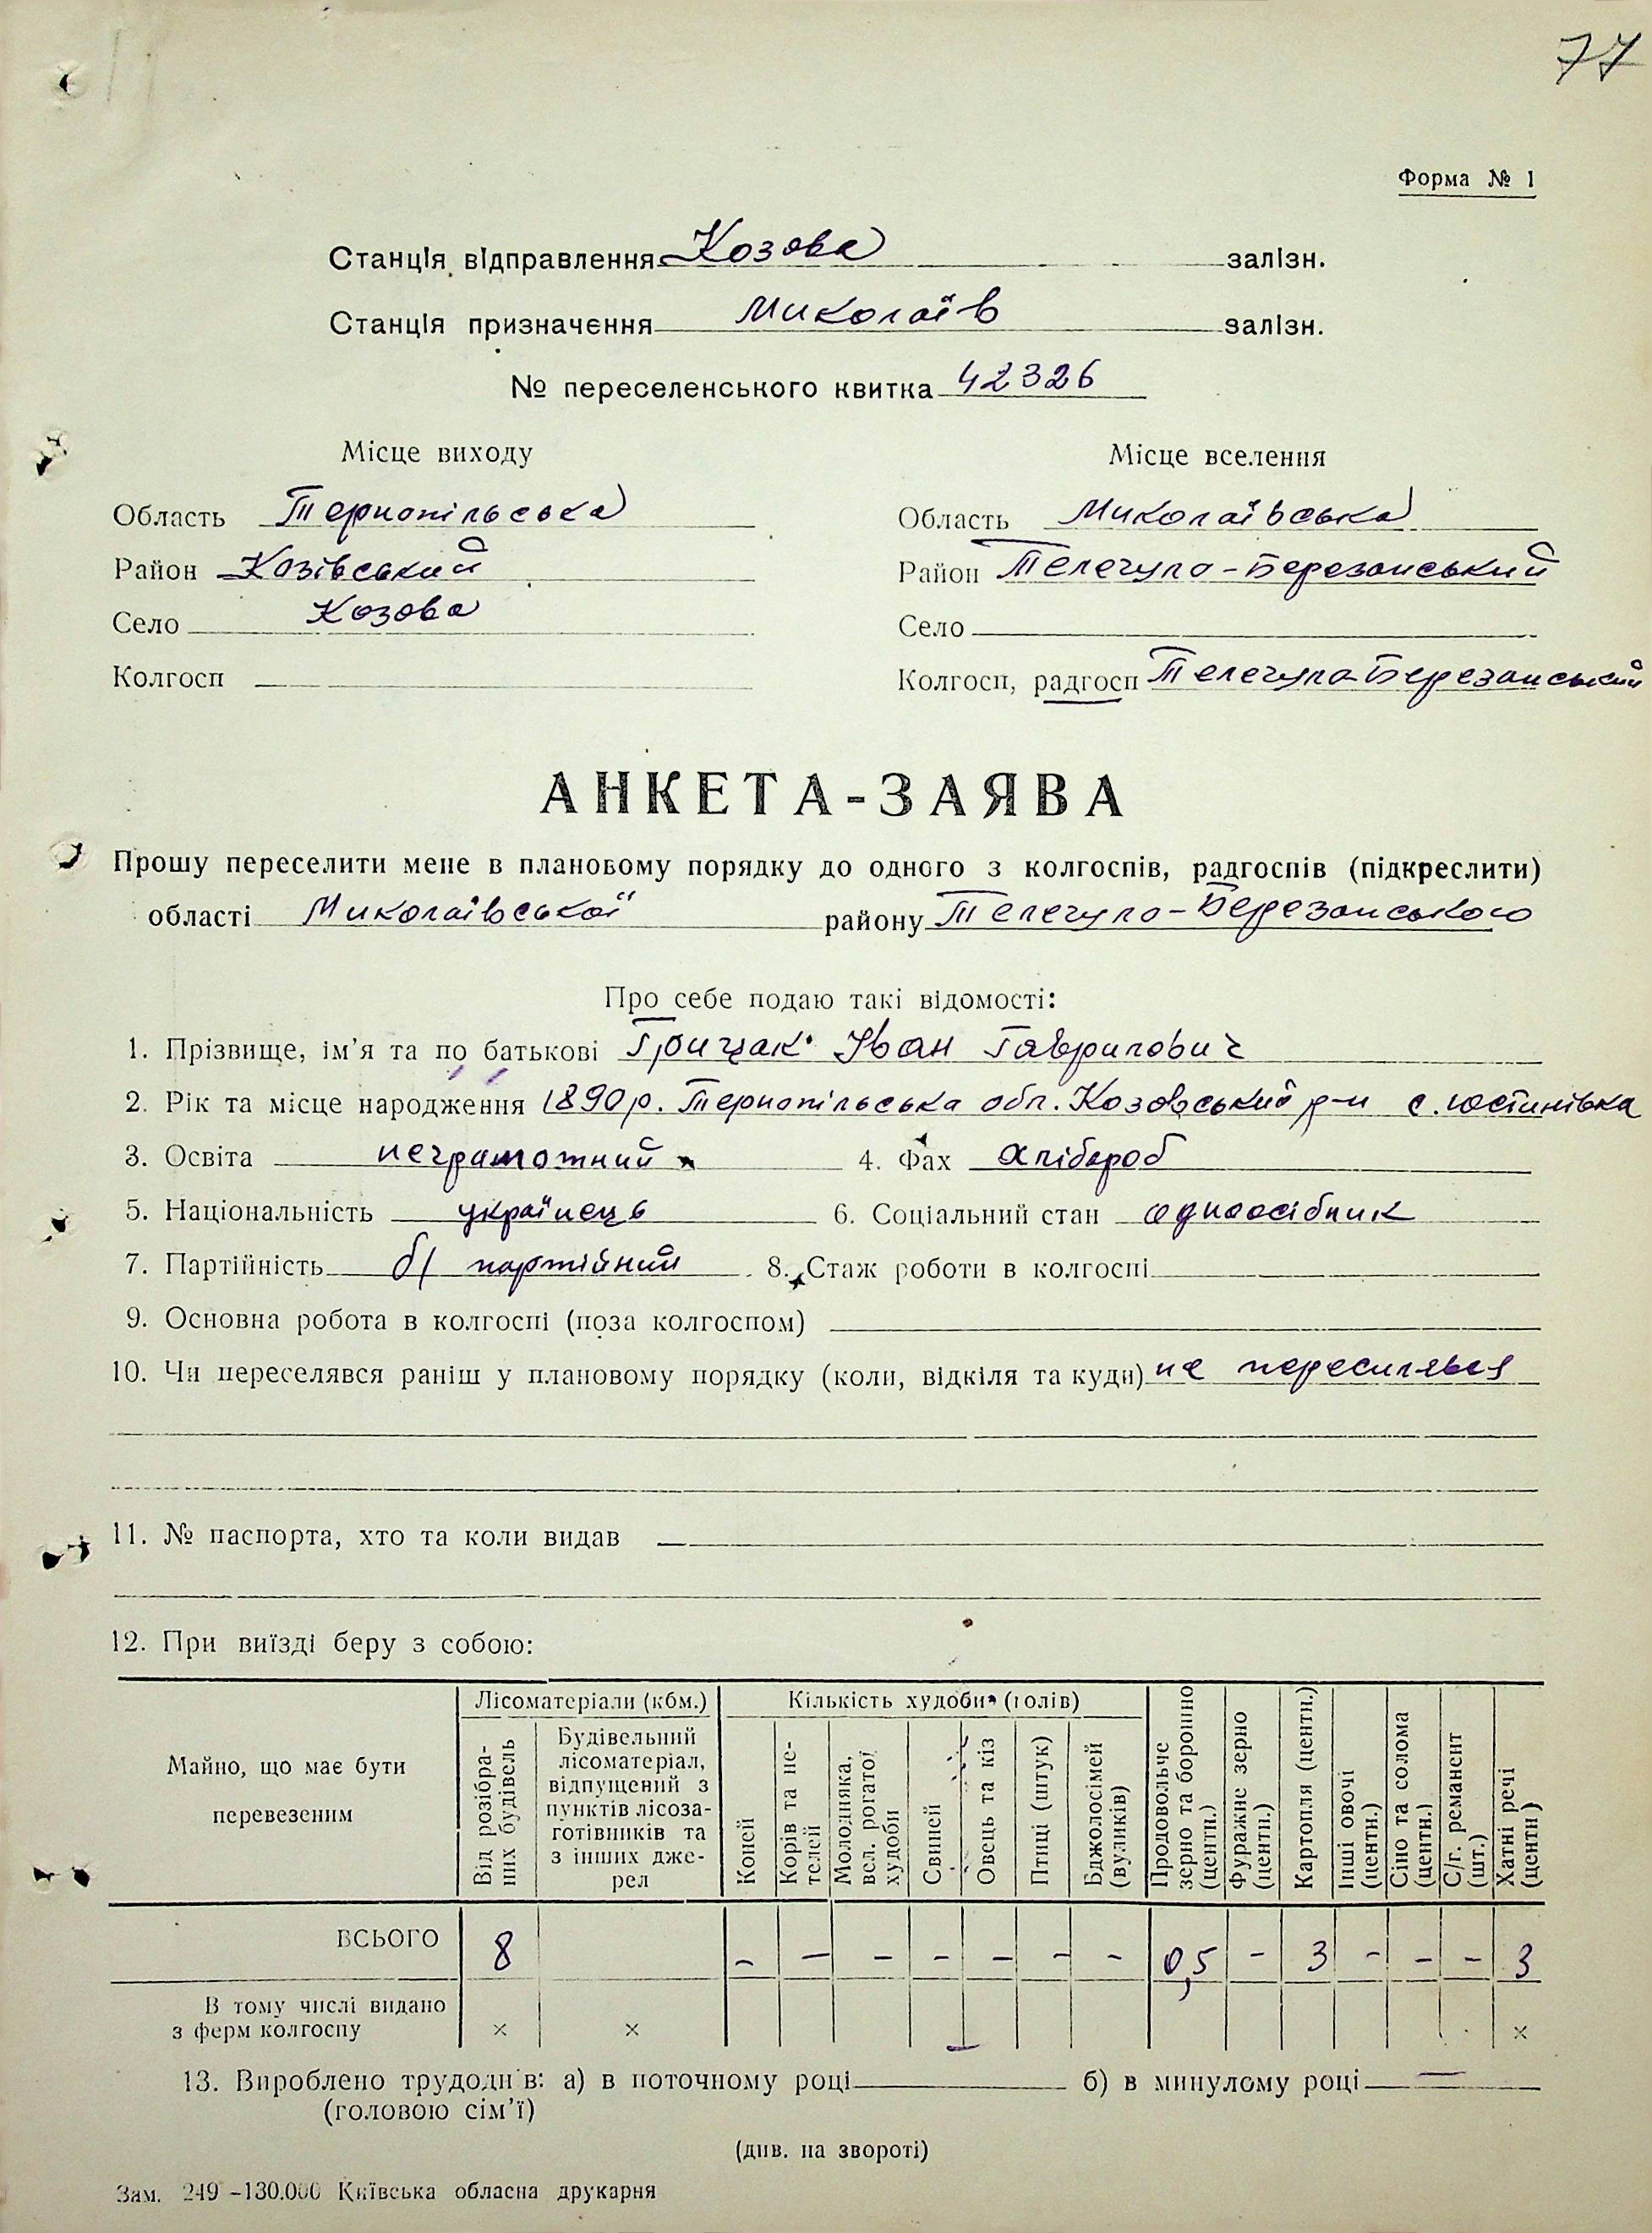 77
Форма № 1
Станція відправлення Козова залізн.
Станція призначення Миколаїв залізн.
№ переселенського квитка 42326
Місце виходу Місце вселення
Область Тернопільська Область Миколаївська
Район Козівський Район Телегуло-Березанський
Село Козова Село
Колгосп Колгосп, радгосп Телегуло-Березанський
АНКЕТА-ЗАЯВА
Прошу переселити мене в плановому порядку до одного з колгоспів, радгоспів (підкреслити)
області Миколаївської району Телегуло-Березанського
Про себе подаю такі відомості:
1. Прізвище, ім’я та по батькові Грицак Іван Гаврилович
2. Рік та місце народження 1890 р. Тернопільська обл. Козовський р-н с. Юстинівка
3. Освіта неграмотний 4. Фах хлібороб
5. Національність українець 6. Соціальний стан одноосібник
7. Партійність б/партійний 8. Стаж роботи в колгоспі
9. Основна робота в колгоспі (поза колгоспом)
10. Чи переселявся раніш у плановому порядку (коли, відкіля та куди) не пересилявся
11. № паспорта, хто та коли видав
12. При виїзді беру з собою:
Майно, що має бути перевезеним
Лісоматеріали (кбм.)
Від розібраних будівель
Будівельний лісоматеріал, відпущений з пунктів лісозаготівників та з інших джерел
Кількість худоби (голів)
Коней
Корів та нетелей
Молодняка, вел. рогатої худоби
Свиней
Овець та кіз
Птиці (штук)
Бджолосімей (вуликів)
Продовольче зерно та борошно (центн.)
Фуражне зерно (центн.)
Картопля (центн.)
Інші овочі (центн.)
Сіно та солома (центн.)
С/г. реманент (шт.)
Хатні речі (центн)
ВСЬОГО 8 – – – – – – – 0,5 – 3 – – – 3
В тому числі видано з ферм колгоспу × × ×
13. Вироблено трудоднів: а) в поточному році б) в минулому році —
(головою сім’ї)
(див. на звороті)
Зам. 249 –130.000 Київська обласна друкарня